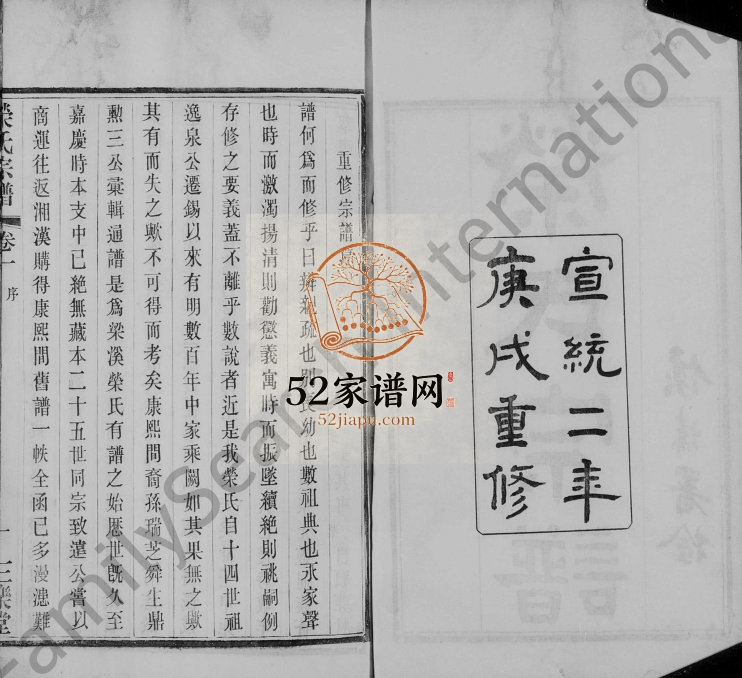 宣統二年
庚戌重修
重修宗譜
譜何爲而修乎曰辨親疏也別長幼也數祖典也永家聲
也時而激濁揚清則勸懲義寓時而振墜續絶則祧嗣例
存修之要義蓋不離乎數說者近是我榮氏自十四世祖
逸泉公遷錫以來有明數百年中家乘闕如其果無之歟
其有而失之歟不可得而考矣康熙間裔孫瑞芝舜生鼎
勲三公彙輯通譜是爲梁溪榮氏有譜之始歴世旣久至
嘉慶時本支中已絶無藏本二十五世同宗致遠公嘗以
商運往返湘漢購得康熙間舊譜一帙全函已多漫漶難
榮氏宗譜
卷一
序
一
三樂堂
52家谱网
52jiapu.com
FamilySearch International